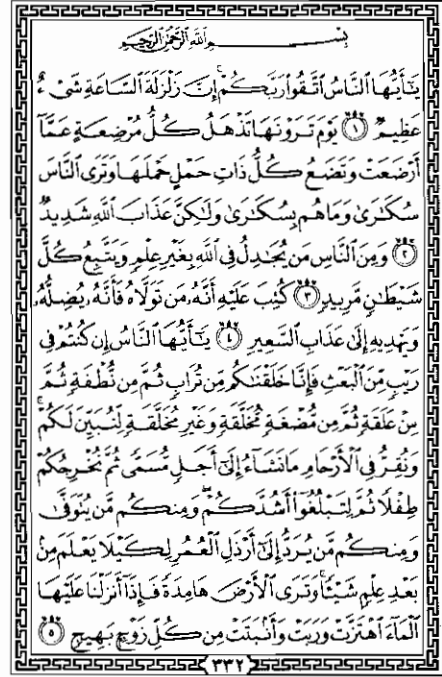 بِسْمِ ٱللَّهِ ٱلرَّحْمَٰنِ ٱلرَّحِيمِ
يَٰٓأَيُّهَا ٱلنَّاسُ ٱتَّقُوا۟ رَبَّكُمْ ۚ إِنَّ زَلْزَلَةَ ٱلسَّاعَةِ شَىْءٌ
عَظِيمٌ ﴿١﴾ يَوْمَ تَرَوْنَهَا تَذْهَلُ كُلُّ مُرْضِعَةٍ عَمَّآ
أَرْضَعَتْ وَتَضَعُ كُلُّ ذَاتِ حَمْلٍ حَمْلَهَا وَتَرَى ٱلنَّاسَ
سُكَٰرَىٰ وَمَا هُم بِسُكَٰرَىٰ وَلَٰكِنَّ عَذَابَ ٱللَّهِ شَدِيدٌ
﴿٢﴾ وَمِنَ ٱلنَّاسِ مَن يُجَٰدِلُ فِى ٱللَّهِ بِغَيْرِ عِلْمٍ وَيَتَّبِعُ كُلَّ
شَيْطَٰنٍ مَّرِيدٍ ﴿٣﴾ كُتِبَ عَلَيْهِ أَنَّهُۥ مَن تَوَلَّاهُ فَأَنَّهُۥ يُضِلُّهُۥ
وَيَهْدِيهِ إِلَىٰ عَذَابِ ٱلسَّعِيرِ ﴿٤﴾ يَٰٓأَيُّهَا ٱلنَّاسُ إِن كُنتُمْ فِى
رَيْبٍ مِّنَ ٱلْبَعْثِ فَإِنَّا خَلَقْنَٰكُم مِّن تُرَابٍ ثُمَّ مِن نُّطْفَةٍ ثُمَّ
مِنْ عَلَقَةٍ ثُمَّ مِن مُّضْغَةٍ مُّخَلَّقَةٍ وَغَيْرِ مُخَلَّقَةٍ لِّنُبَيِّنَ لَكُمْ ۚ
وَنُقِرُّ فِى ٱلْأَرْحَامِ مَا نَشَآءُ إِلَىٰٓ أَجَلٍ مُّسَمًّى ثُمَّ نُخْرِجُكُمْ
طِفْلًا ثُمَّ لِتَبْلُغُوٓا۟ أَشُدَّكُمْ ۖ وَمِنكُم مَّن يُتَوَفَّىٰ
وَمِنكُم مَّن يُرَدُّ إِلَىٰٓ أَرْذَلِ ٱلْعُمُرِ لِكَيْلَا يَعْلَمَ مِنۢ
بَعْدِ عِلْمٍ شَيْـًٔا ۚ وَتَرَى ٱلْأَرْضَ هَامِدَةً فَإِذَآ أَنزَلْنَا عَلَيْهَا
ٱلْمَآءَ ٱهْتَزَّتْ وَرَبَتْ وَأَنۢبَتَتْ مِن كُلِّ زَوْجٍۭ بَهِيجٍ ﴿٥﴾
٣٣٢